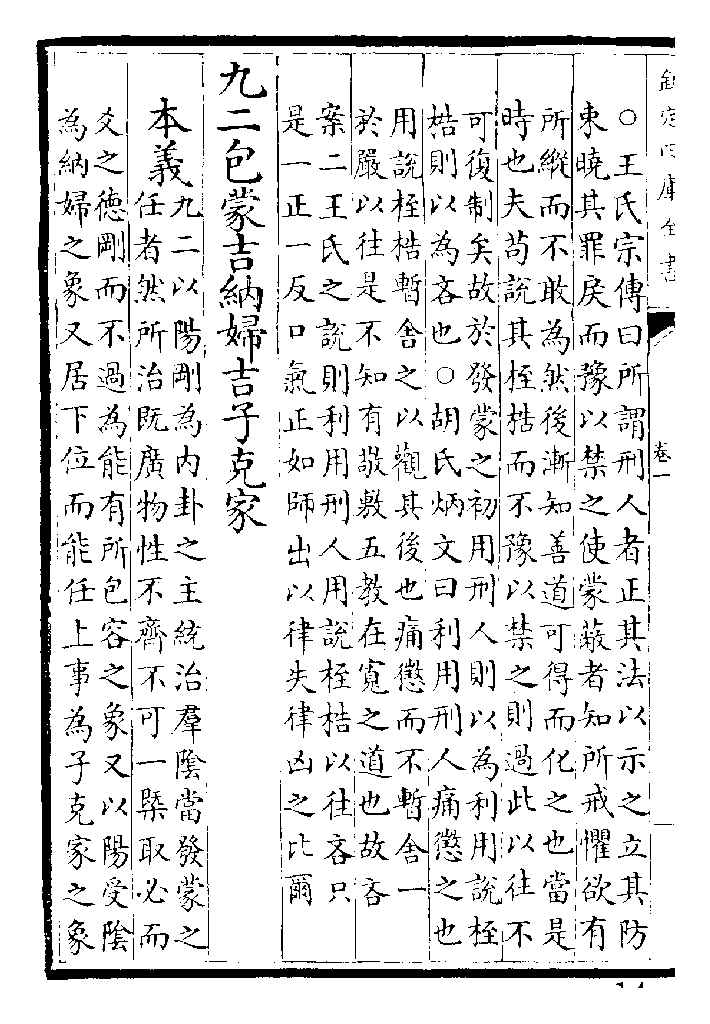 欽定四庫全書
卷一
○王氏宗傳曰所謂刑人者正其法以示之立其防
束曉其罪戾而豫以禁之使蒙蔽者知所戒懼欲有
所縱而不敢為然後漸知善道可得而化之也當是
時也夫苟說其桎梏而不豫以禁之則過此以往不
可復制矣故於發蒙之初用刑人則以為利用說桎
梏則以為吝也○胡氏炳文曰利用刑人痛懲之也
用說桎梏暫舍之以觀其後也痛懲而不暫舍一
於嚴以往是不知有敬敷五教在寬之道也故吝
案二王氏之說則利用刑人用說桎梏以往吝只
是一正一反口氣正如師出以律失律凶之比爾
九二包蒙吉納婦吉子克家
本義九二以陽剛為內卦之主統治羣陰當發蒙之
任者然所治既廣物性不齊不可一槩取必而
爻之德剛而不過為能有所包容之象又以陽受陰
為納婦之象又居下位而能任上事為子克家之象